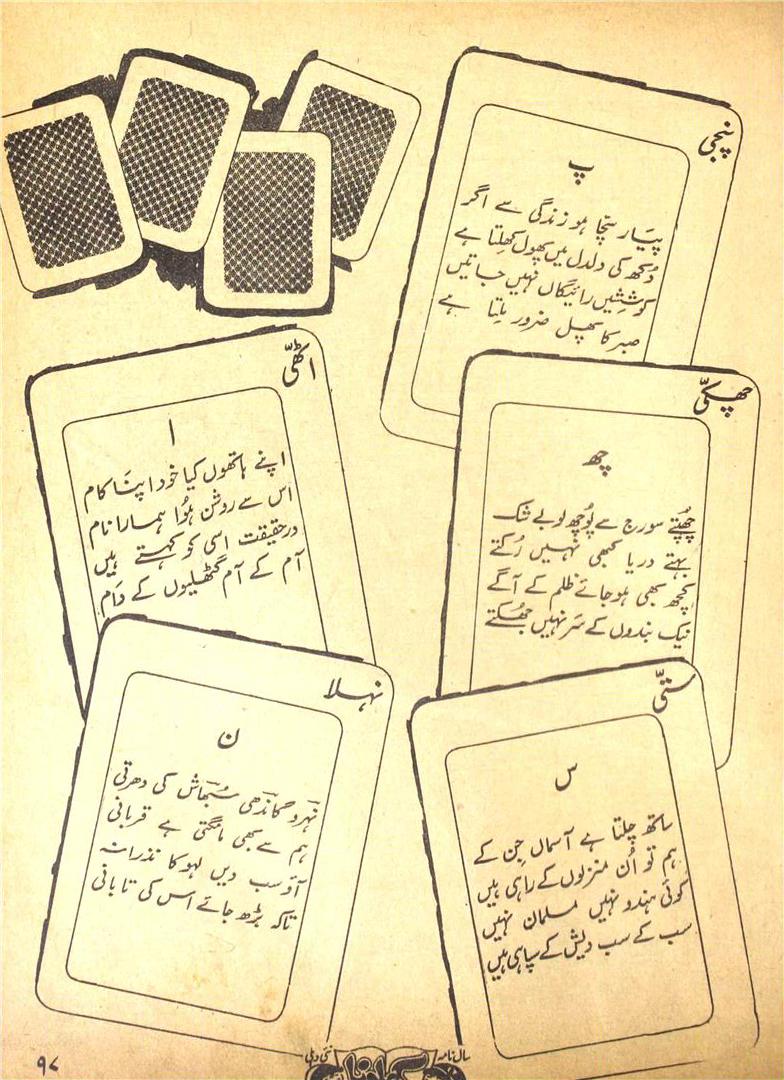 پنجی
پ
پیار سچا ہو زندگی سے اگر
دُکھ کی دلدل میں پھول کھِلتا ہے
کوشِشیں رائیگاں نہیں جاتیں
صبر کا پھل ضرور مِلتا ہے
چھکّی
چھ
چھُپتے سورج سے پوُچھ لو بے شک
بہتے دریا کبھی نہیں رُکتے
کچھ بھی ہو جائے ظلم کے آگے
نیک بندوں کے سَر نہیں جھُکتے
ستّی
س
ساتھ چلتا ہے آسماں جن کے
ہم تو اُن منزلوں کے راہی ہیں
کوئی ہندو نہیں مسلمان نہیں
سب کے سب دیش کے سپاہی ہیں
اٹھّی
ا
اپنے ہاتھوں کیا خود اپنَا کام
اس سے روشن ہُوا ہمارا نام
درحقیقت اسی کو کہتے ہیں
آم کے آم گٹھلیوں کے دَام
نہلا
ن
نہرو گاندھی سُبھاش کی دھرتی
ہم سے بھی مانگتی ہے قربانی
آؤ سب دیں لہو کا نذرانہ
تاکہ بڑھ جائے اس کی تابانی
سالنامہ کھلونا نئی دہلی
۹۷